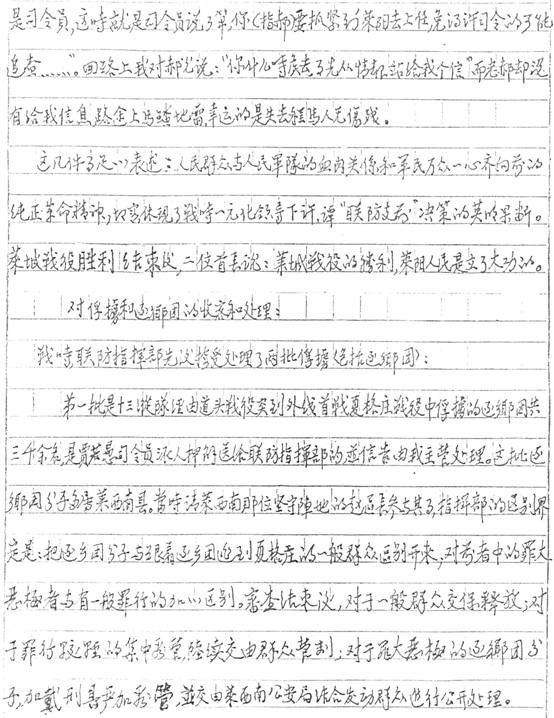 是司令员，这时就是司令员说了算，你（指郝）要抓紧到莱阳去上任，免得许司令的了能
追查……"。回路上我对郝兄说："你什么时启去了先从情报站给我个信"而老郝却没
有给我信息，路企上马踏地雷幸运的是失去骑马人无伤残。
这几件了足以表述：人民群众与人民军队的血肉关係和军民万众一心齐向前的
纯正革命精神，切实体现了战时一元化领导下许、谭"联防支前"决策的英明果断。
莱城战役胜利结束后，二位首长说：莱城战役的胜利，莱阳人民是立了大功的。
对俘掳和还乡团的收容和处理：
战时联防指挥部先后接受处理了两批俘掳（包括还乡团）：
第一批是十三纵队经由道头战役突到外线首战夏格庄战役中俘掳的还乡团共
三千余名是贾若愚司令员派人押解送给联防指挥部的并信告由我主营处理。这批还
乡团分子多居莱西南县。当时请莱西南那位坚守阵地的赵区长参与其了，指挥部的区别界
定是：把还乡团分子与跟着还乡团逃到夏格庄的一般群众区别开来，对前者中的罪大
恶极者与有一般罪行的加以区别。审查结束后，对于一般群众交保释放；对
于罪行较轻的集中看管陆续交由群众管制；对于罪大恶极的还乡团分
子，加戴刑具严加看管，並交由莱西南公安局结合发动群众进行公开处理。